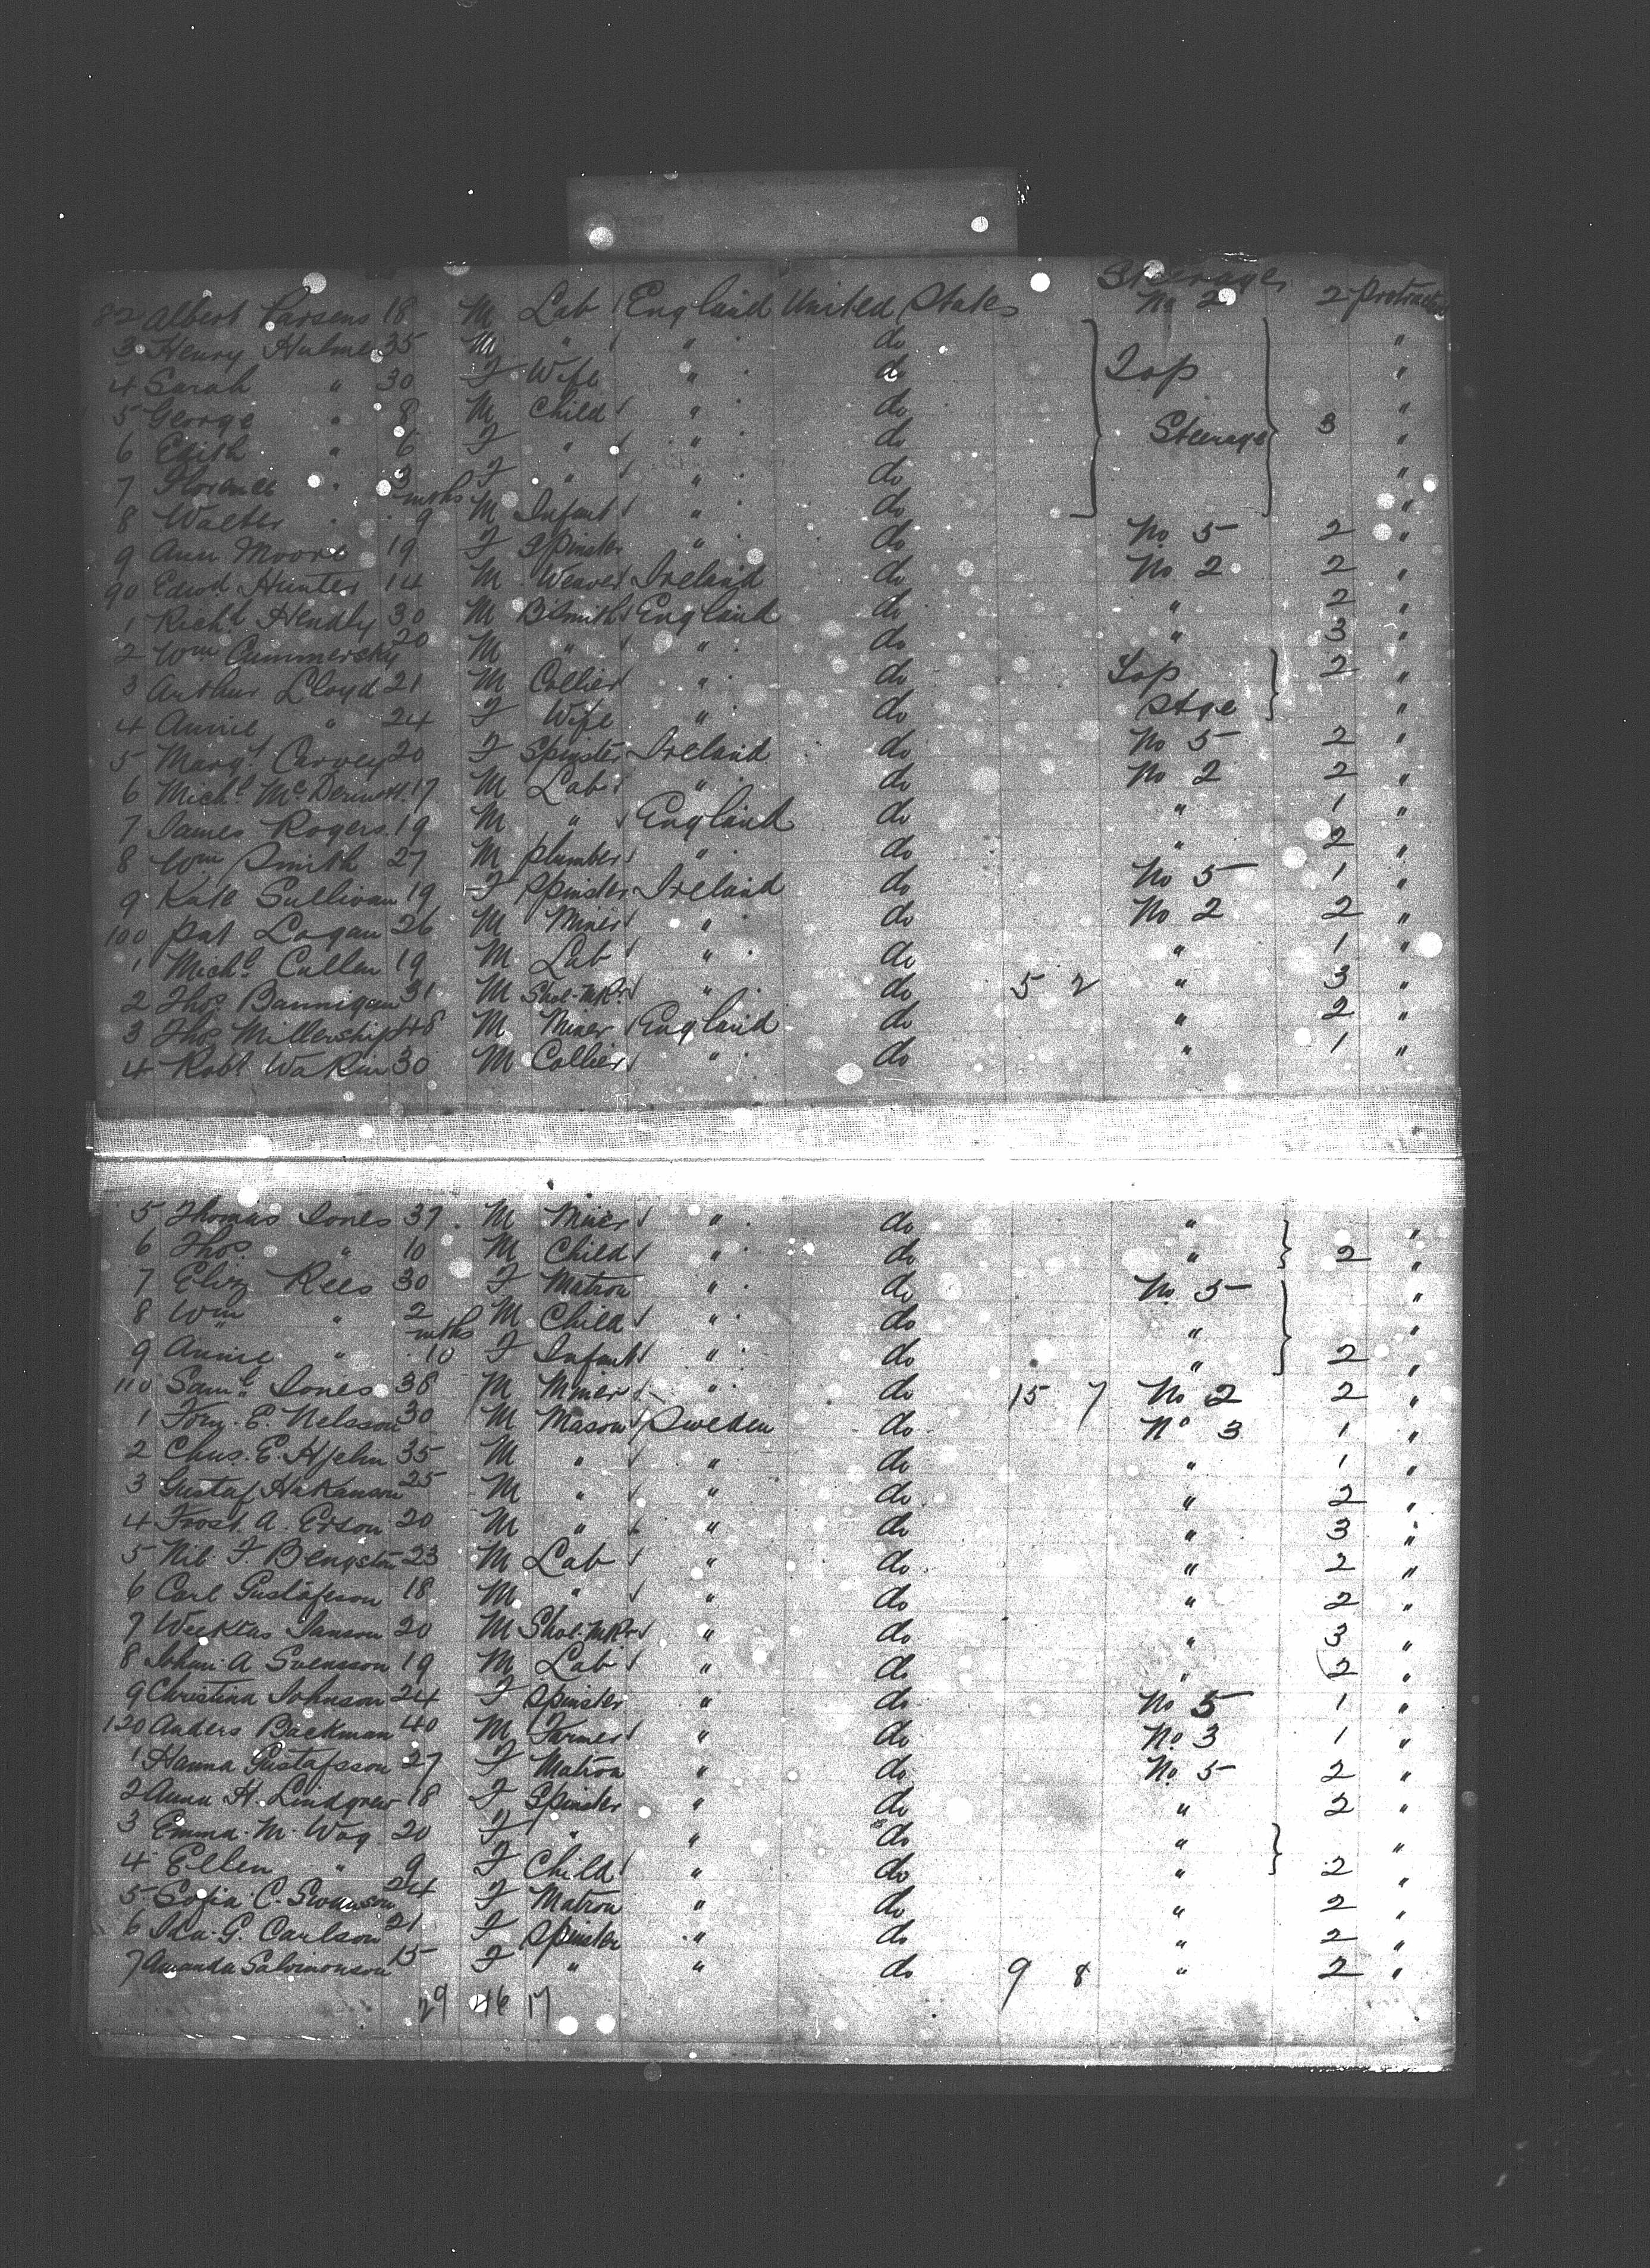 Steerage
82 Albert Larsens 18 M Lab England United States No 2 2 Protracted
3 Henry Hulme 35 M " " do "
4 Sarah " 30 F Wife " do Top "
5 George " 8 M Child " do "
6 Edith " 6 F " " do Steerage 3 "
7 Florence " 3 F " " do "
mths
8 Walter " 9 M Infant " do "
9 Ann Moore 19 F Spinster " do No 5 2 "
90 Edwd Hunter 14 M Weaver Ireland do No 2 2 "
1 Richd Hendly 30 M BSmith England do " 2 "
2 Wm Cummersky 20 M " " do " 3 "
3 Arthur Lloyd 21 M Collier " do Top 2 "
4 Annie " 24 F Wife " do Stge "
5 Margt Carvey 20 F Spinster Ireland do No 5 2 "
6 Michl McDermott 17 M Lab " do No 2 2 "
7 James Rogers 19 M " England do " 1 "
8 Wm Smith 27 M plumber " do " 2 "
9 Kate Sullivan 19 F Spinster Ireland do No 5 1 "
100 Pat Logan 26 M Miner " do No 2 2 "
1 Michl Cullen 19 M Lab " do " 1 "
2 Thos Bannigan 31 M Shoe-Mkr " do 5 2 " 3 "
3 Thos Millership 48 M Miner England do " 2 "
4 Robt Wakin 30 M Collier " do " 1 "
5 Thomas Jones 37 M Miner " do " "
6 Thos " 10 M Child " do " 2 "
7 Eliz Rees 30 F Matron " do No 5 "
8 Wm " 2 M Child " do " "
mths
9 Annie " 10 F Infant " do " 2 "
110 Saml Jones 38 M Miner " do 15 7 No 2 2 "
1 E. Nelsson 30 M Mason Sweden do No 3 1 "
2 Chas. E. Hjelm 35 M " " do " 1 "
3 Gustaf Hakanson 25 M " " do " 2 "
4 Frost. A. Erson 20 M " " do " 3 "
5 F Bengston 23 M Lab " do " 2 "
6 Carl Gustafsson 18 M " " do " 2 "
7 Janson 20 M Shoe-Mkr " do " 3 "
8 Johan A Svensson 19 M Lab " do " 2 "
9 Christina Johnson 24 F Spinster " do No 5 1 "
120 Anders Backman 40 M Farmer " do No 3 1 "
1 Hanna Gustafsson 27 F Matron " do No 5 2 "
2 Anna H. Lindgren 18 F Spinster " do " 2 "
3 Emma M. Wog 20 F " " do " "
4 Ellen " 9 F Child " do " 2 "
5 Sofia C. Swanson 24 F Matron " do " 2 "
6 Ida G. Carlson 21 F Spinster " do " 2 "
7 Amanda Salomonson 15 F " " do 9 8 " 2 "
29 46 17